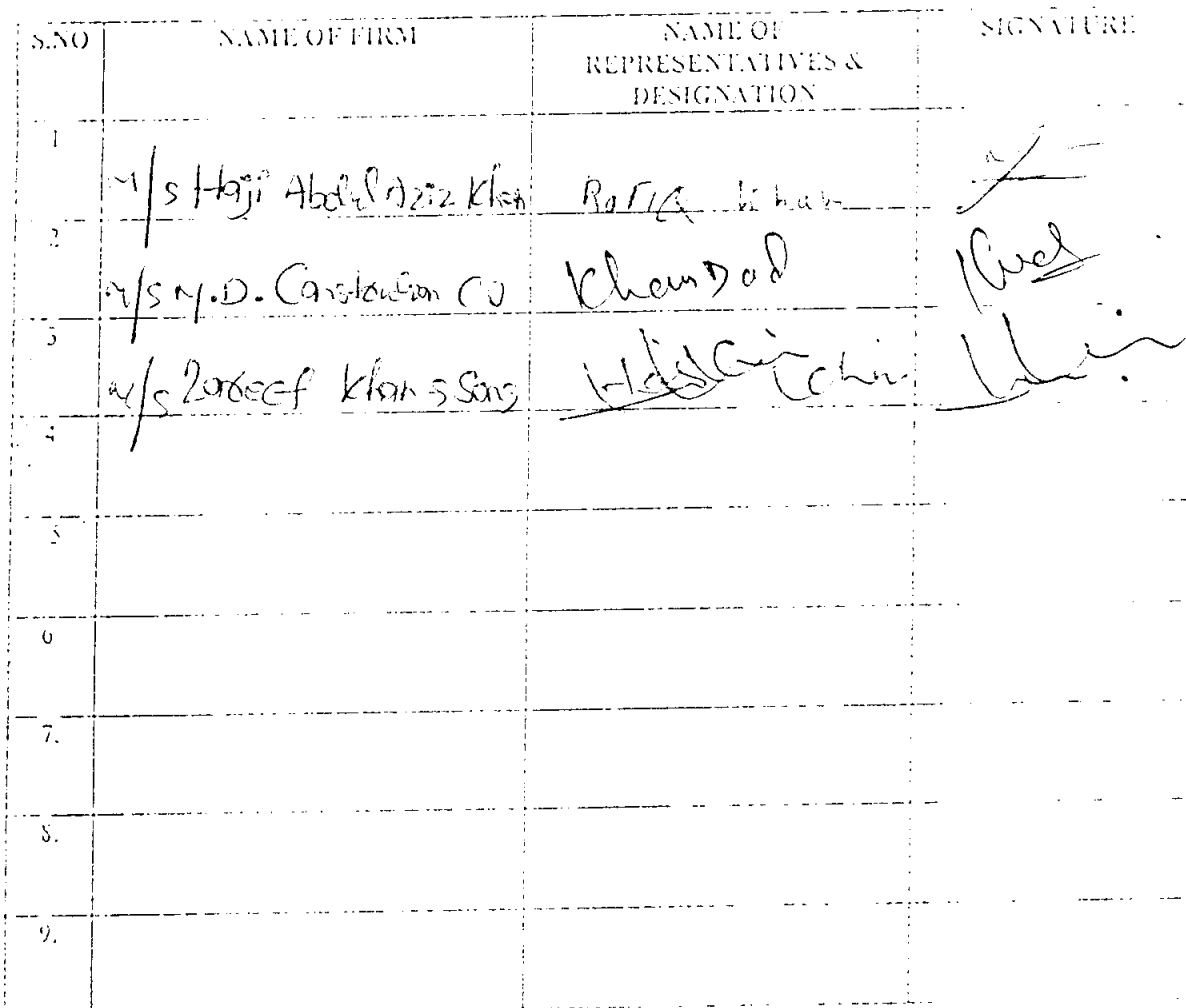 S.NO NAME OF FIRM NAME OF REPRESENTATIVES & DESIGNATION SIGNATURE
1 M/S Haji Abdul Aziz Khan Rafiq Khan
2 M/S M.D. Construction CO Khan Dad
3 M/S Zareef Khan & Sons
4
5
6
7.
8.
9.